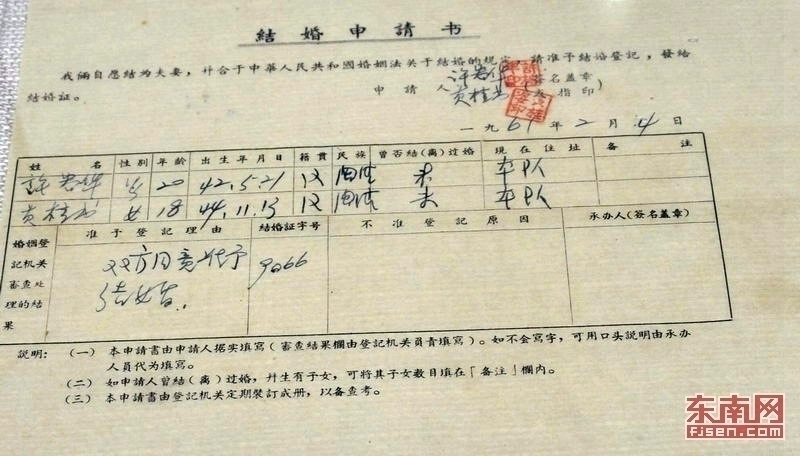 結婚申請书
我倆自愿結为夫妻，幷合于中華人民共和國婚姻法关于結婚的規定，請准予結婚登記，發給
結婚証。
申請人 签名盖章
黄桂 指印
一九61年2月4日
姓名 性别 年龄 出生年月日 籍貫 民族 曾否結(离)过婚 現在住址 备注
許 男 20 42.5.21 汉 未
黄桂 女 18 44.11.13 汉 未
婚姻登記机关審查处理的結果 准予登記理由 結婚証字号 不准登記原因 承办人(簽名盖章)
双方同意 予 9066
结婚
説明：(一) 本申請书由申請人据实填寫(審查結果欄由登記机关負責填寫)。如不会寫字，可用口头説明由承办
人員代为填寫。
(二) 如申請人曾結(离)过婚，幷生有子女，可将其子女数目填在「备注」欄內。
(三) 本申請书由登記机关定期裝訂成册，以备查考。
东南网
fjsen.com